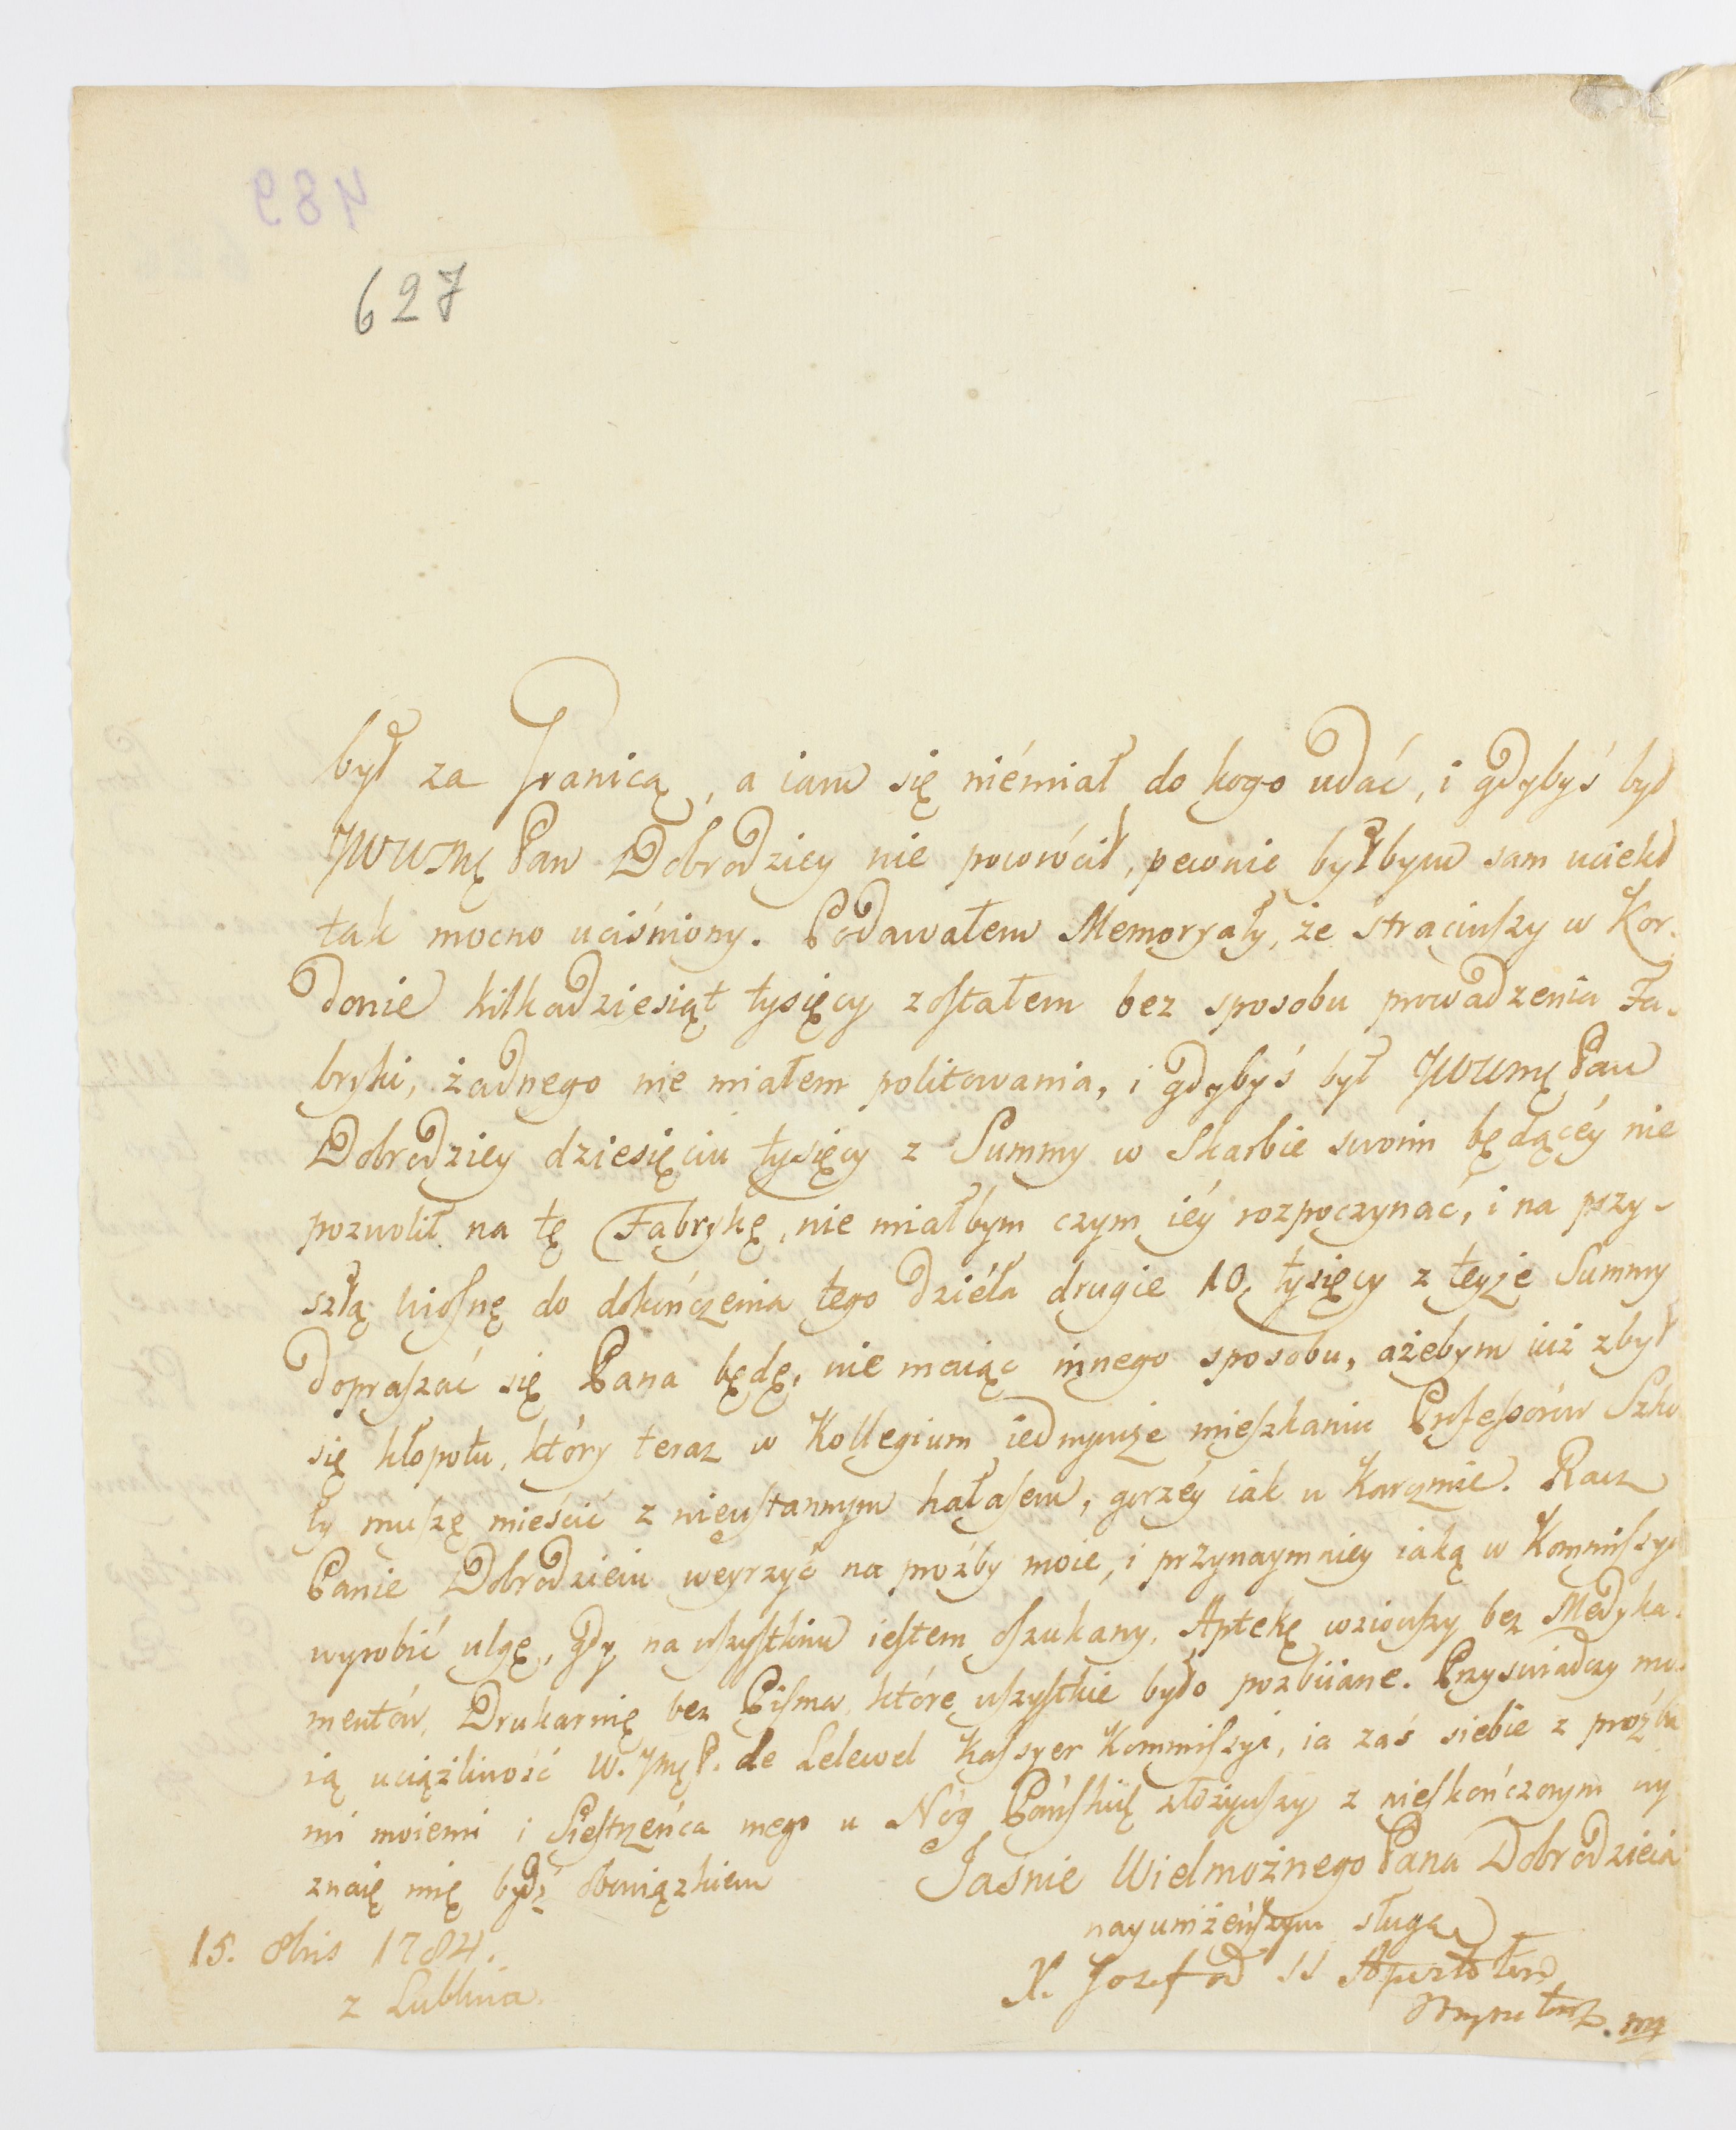 489
627
był za Granicą, a iam się niémiał do kogo udać, i gdybyś był
JWWmę Pan Dobrodziey nie powrócił, pewnie byłbym sam uciekł
tak mocno uciśniony. Podawałem Memoryały, że straciwszy w Kor-
donie kilkadziesiąt tysięcy zostałem bez sposobu prowadzenia Fa-
bryki, żadnego nie miałem politowania, i gdybyś był JWWmę Pan
Dobrodziey dziesięciu tysięcy z Summy w Skarbie swoim będącéy nie
pozwolił na tę Fabrykę, nie miałbym czym iéy rozpoczynać, i na przy-
szłą wiosnę do dokończenia tego dziéła drugie 10. tysięcy z teyże Summy
dopraszać się Pana będę, nie maiąc innego sposobu, ażebym iuż zbył
się kłopotu, który teraz w Kollegium iednymże mieszkaniu Professorów Szko
ły muszę mieścić z nieustannym hałasem, gorzéy iak w Karczmie. Racz
Panie Dobrodzieiu weyrzyć na proźby moie, i przynaymniey iaką w Kommissyi
wyrobić ulgę, gdy na wszystkim iestem oszukany, Aptekę wziąwszy bez Medyka-
mentów, Drukarnię bez Pisma, które wszystkie było pozbiiane. Przyświadczy mo-
ią uciążliwość W. JmęP. de Lelewel Kassyer Kommissyi, ia zaś siebie z proźba
mi moiemi i Siestrzeńca mego u Nóg Pańskich złożywszy z nieskończonym wy
znaię mię bydź obowiązkiem
Jaśnie Wielmożnego Pana Dobrodzieia
nayuniżeńszym sługą
X. Jozef od SS Apostołow
15. 8bris 1784.
z Lublina.